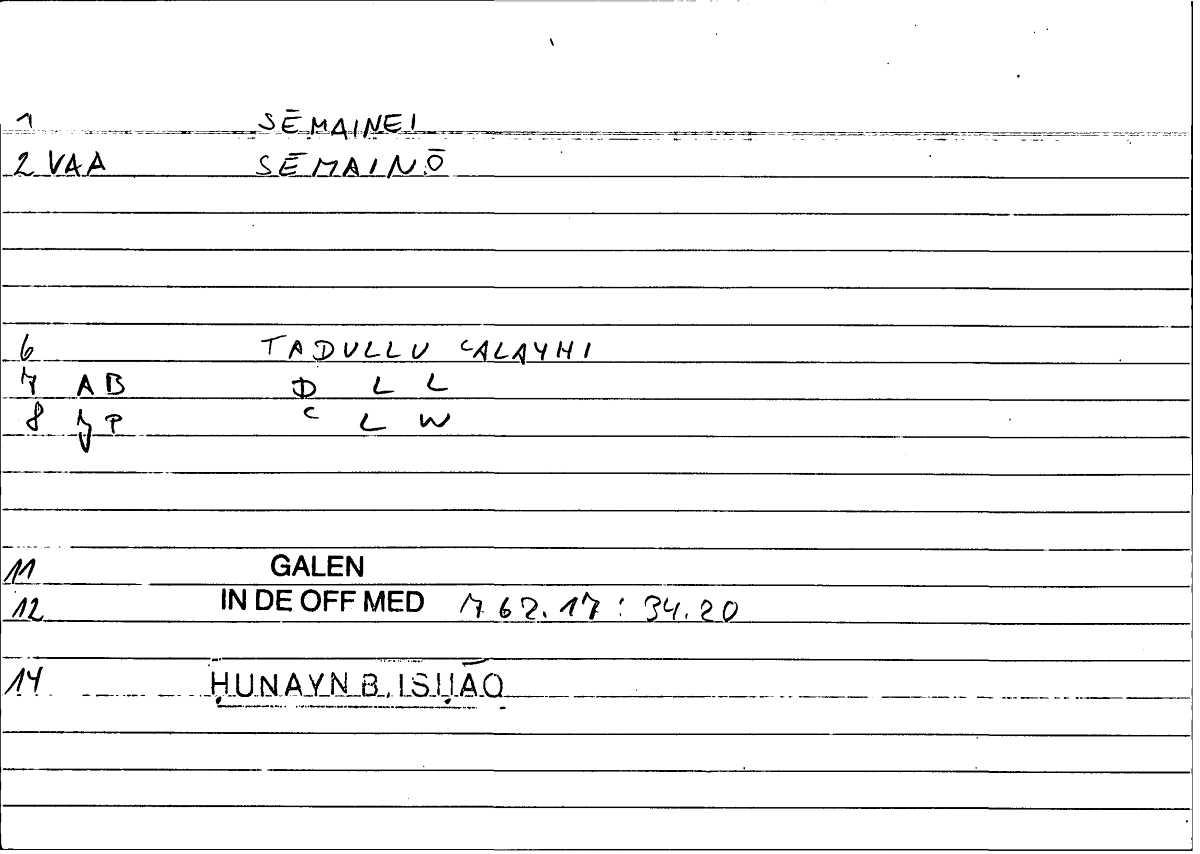 1 SĒMAINEI
2 VAA SĒMAINŌ
6 TADULLU ʿALAYHI
7 AB D L L
8 JP ʿ L W
11 GALEN
12 IN DE OFF MED 762.17 : 34.20
14 ḤUNAYN B. ISḤĀQ